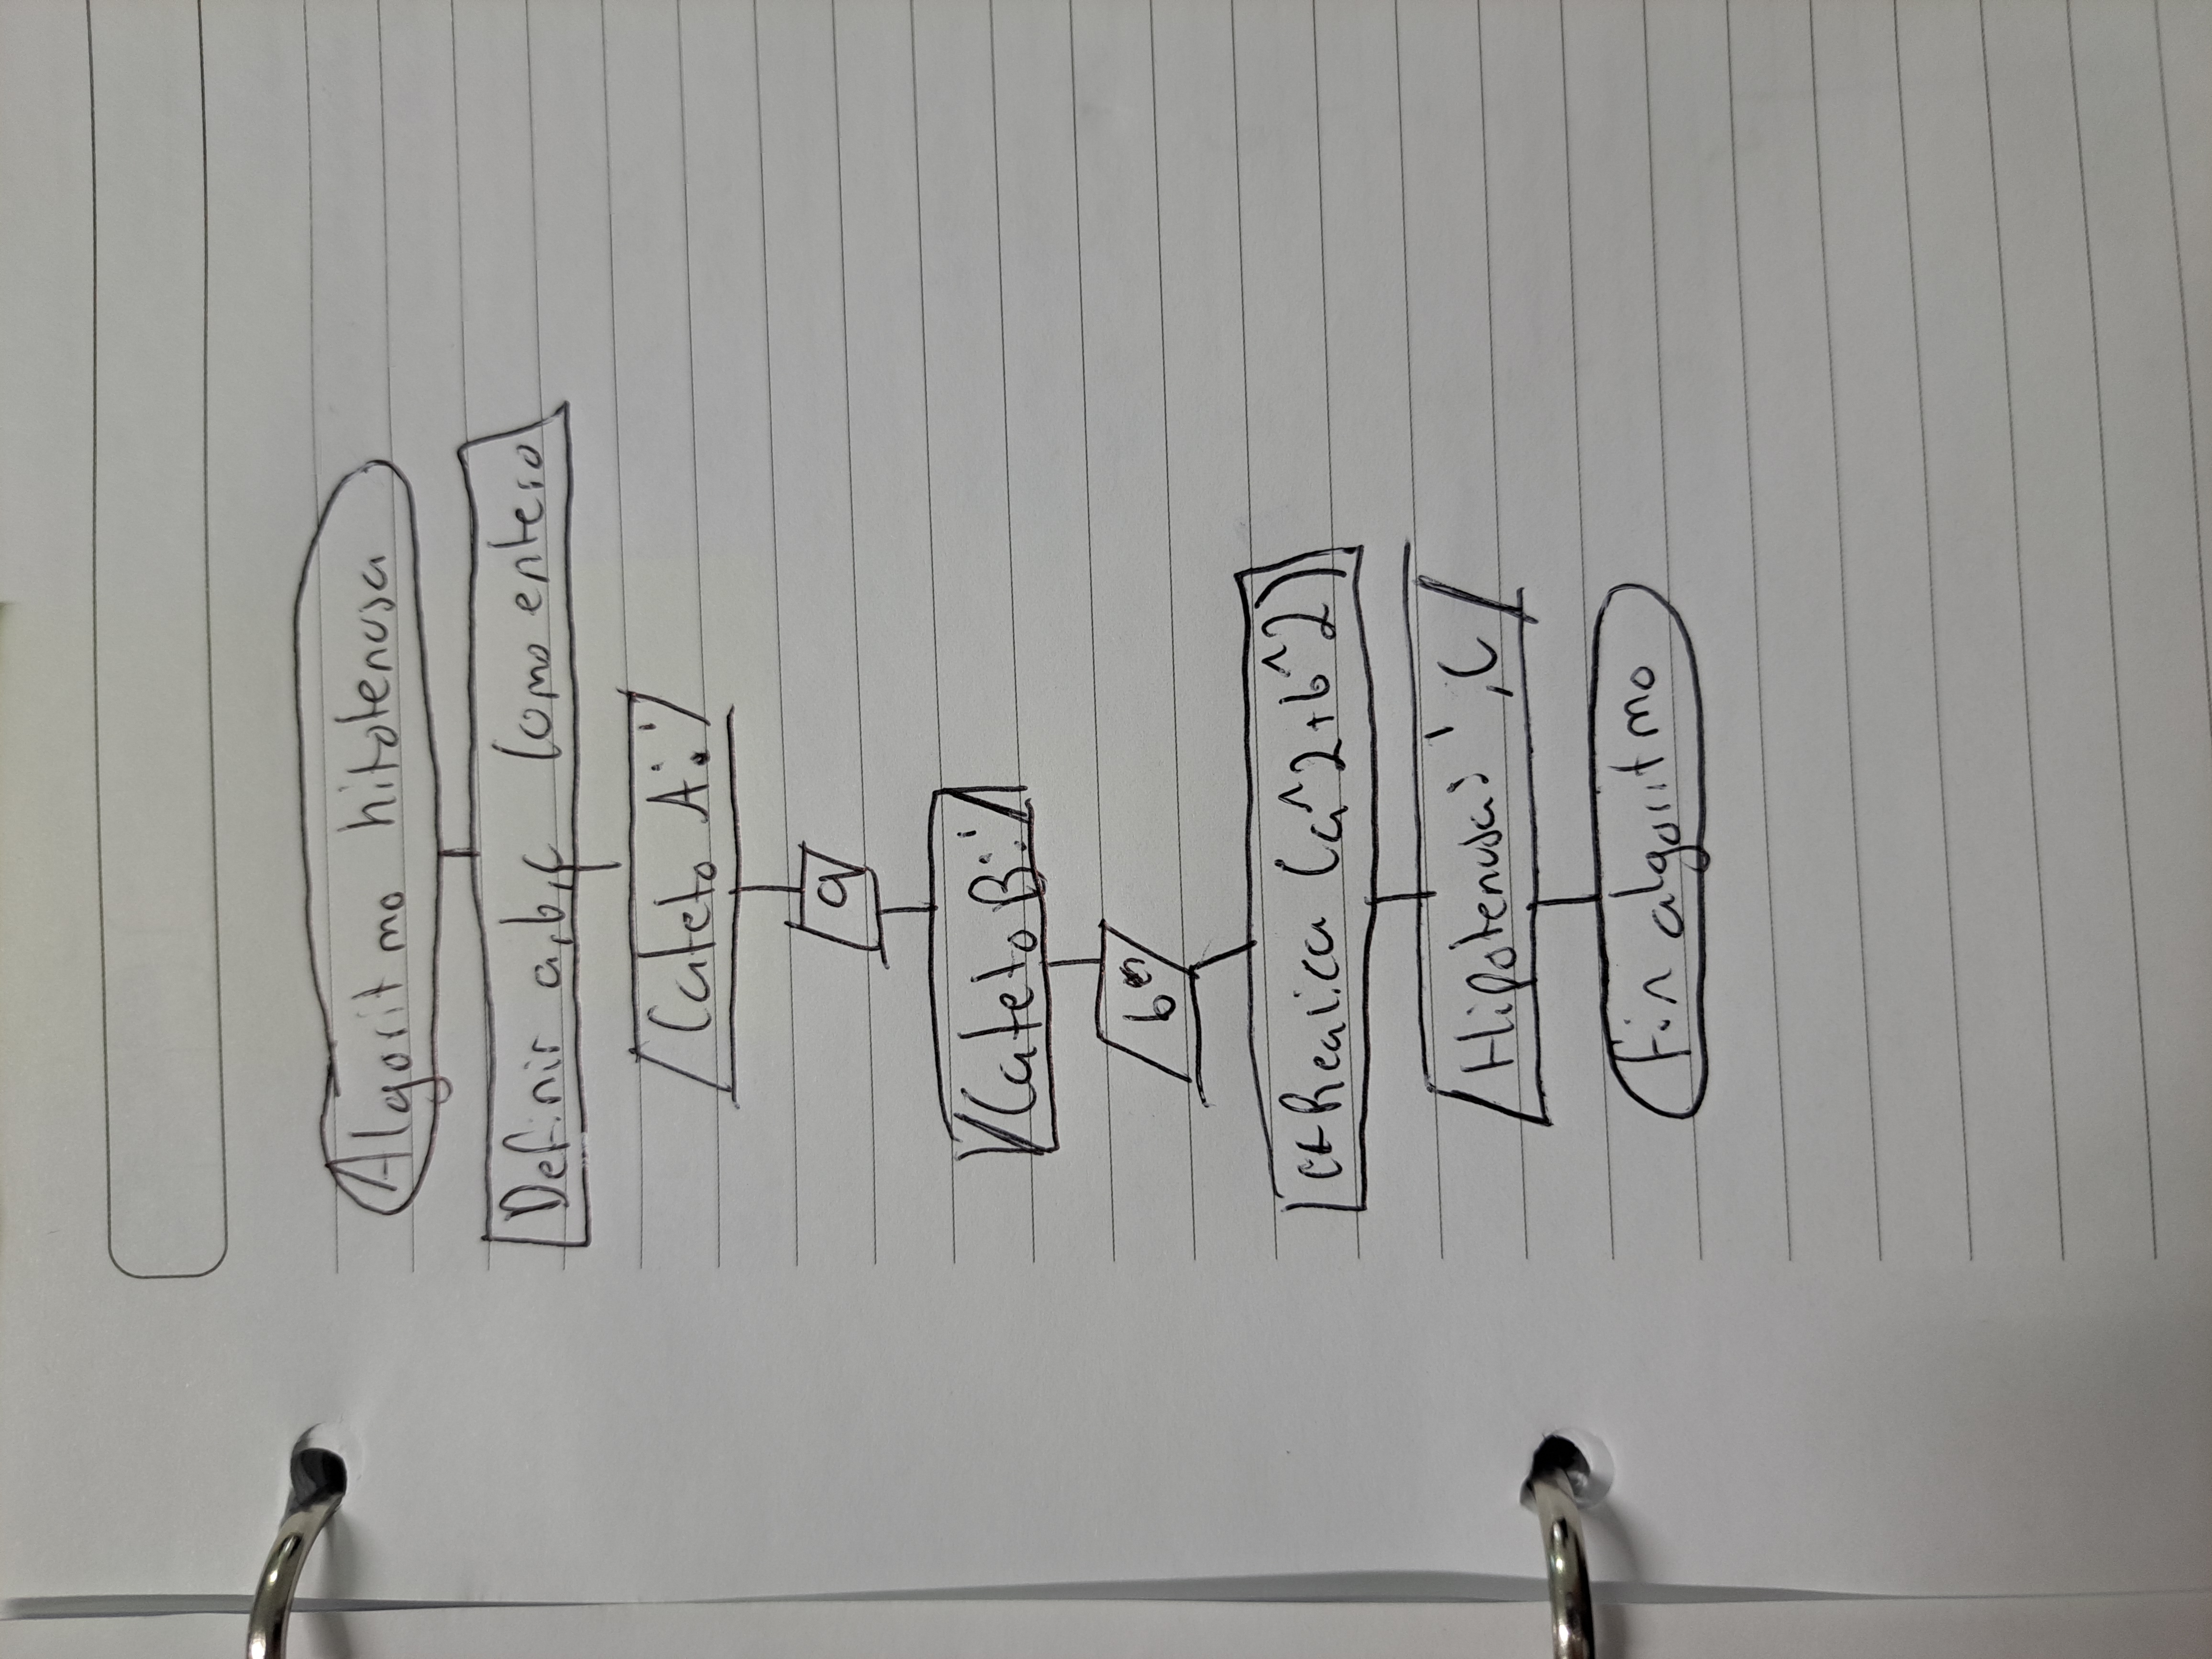 Algoritmo hitotenusa
Definir a,b,c Como entero
'Cateto A:'
a
'Cateto B:'
b
c←Rearica (a^2+b^2)
'Hipotenusa: ',C
Fin algoritmo